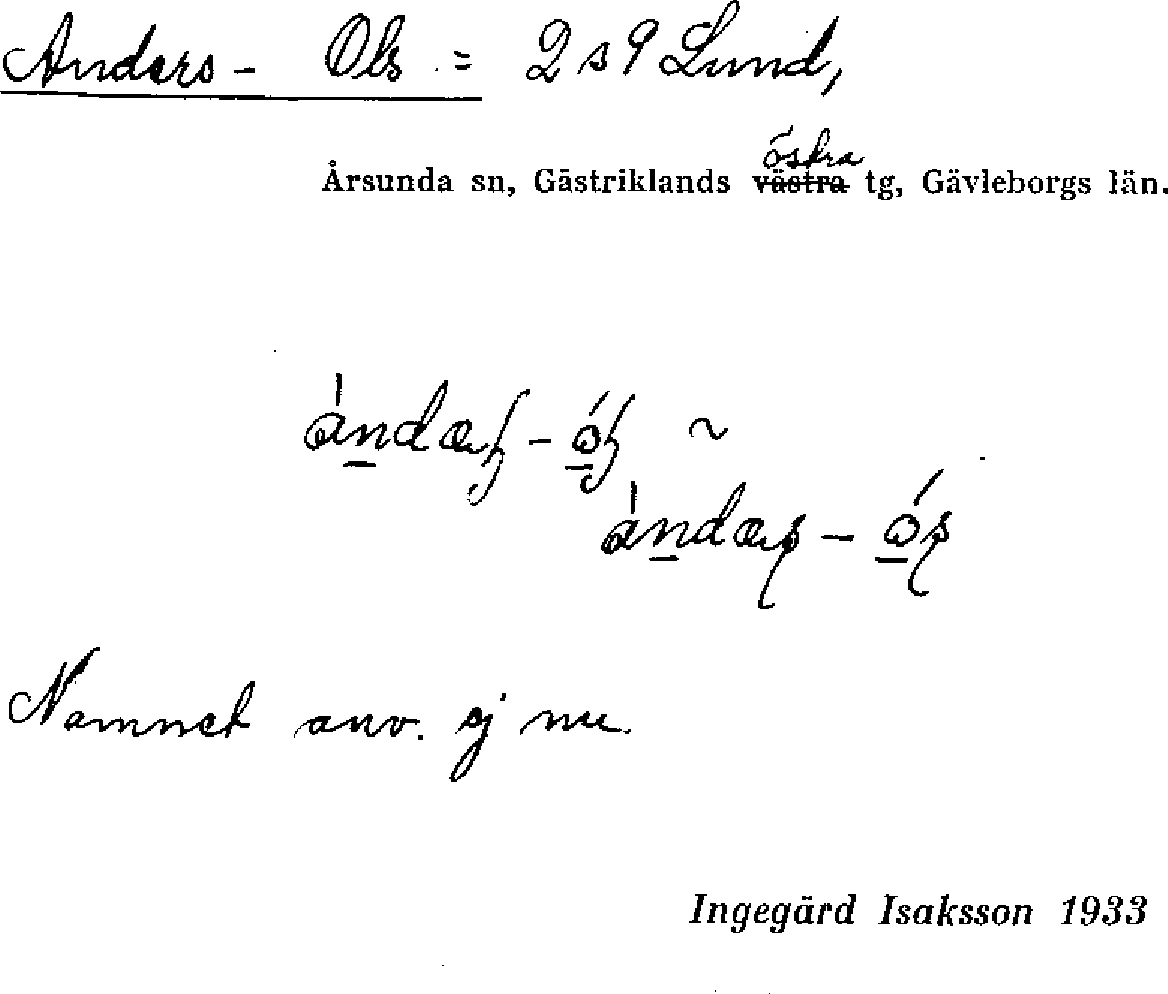 Anders - Ols = 2 s 9 Lund,
östra
Årsunda sn, Gästriklands västra tg, Gävleborgs län.
Namnet anv. ej nu.
Ingegärd Isaksson 1933